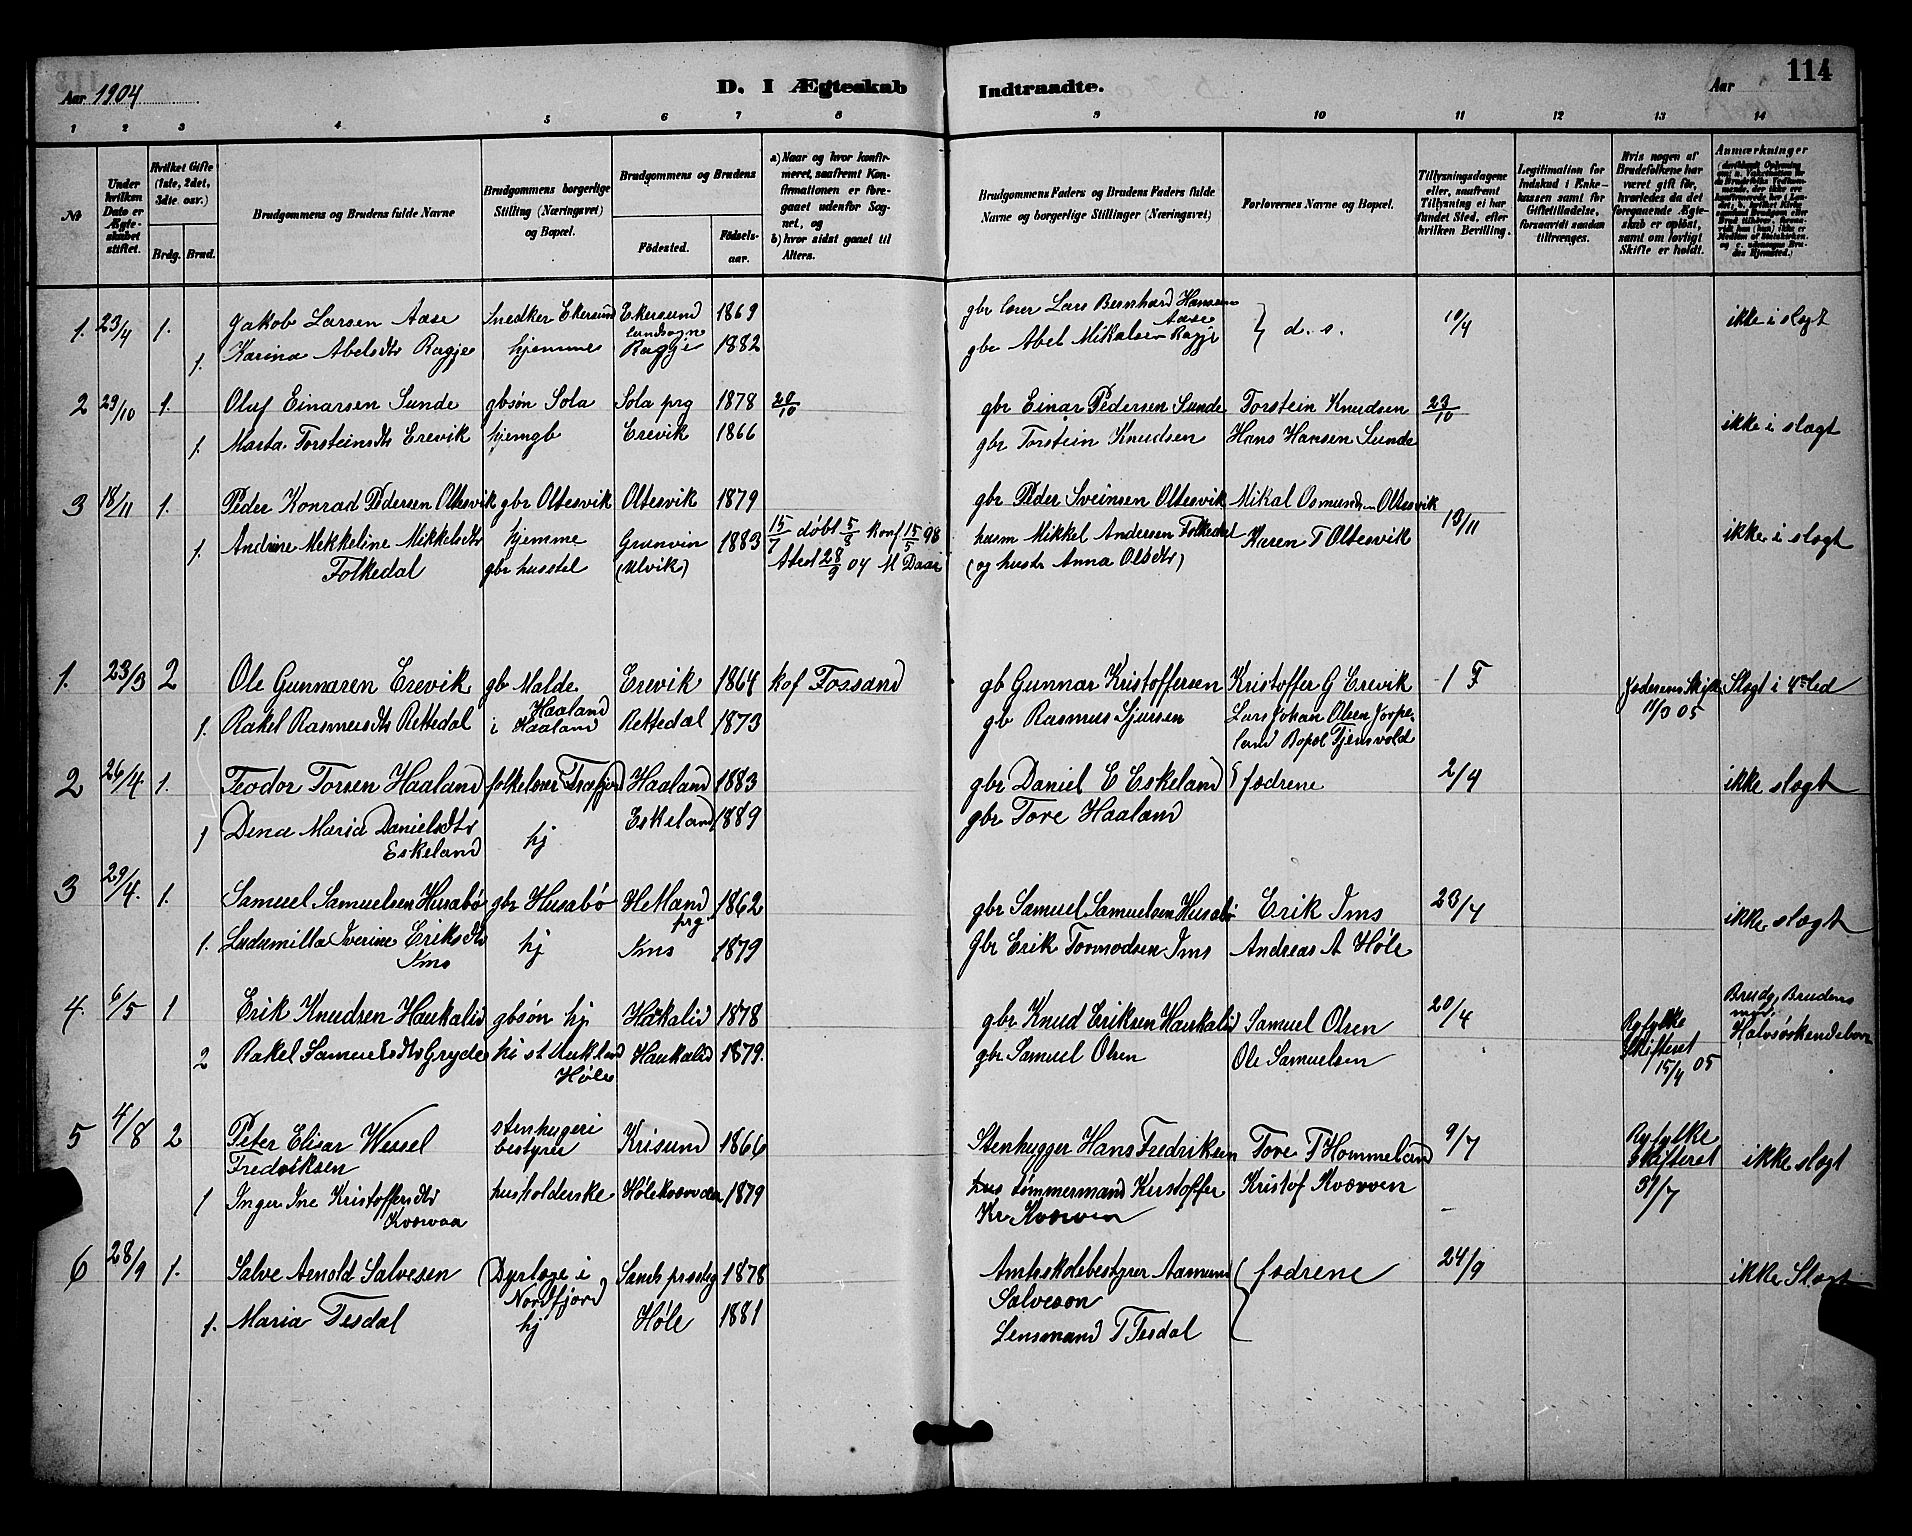 Aar 1904 D. I Ægteskab Indtraadte. Aar 114
1 2 3 4 5 6 7 8 9 10 11 12 13 14
№
Under hvilken Dato er Ægteskabet stiftet.
Hvilket Gifte (1ste, 2det, 3die osv.)
Brdg. Brud.
Brudgommens og Brudens fulde Navne
Brudgommens borgerlige Stilling (Næringsvei) og Bopæl.
Brudgommens og Brudens
Födested. Födsels-aar.
a) Naar og hvor konfirmeret, saafremt Konfirmationen er foregaaet udenfor Sognet, og
b) hvor sidst gaaet til Alters.
Brudgommens Faders og Brudens Faders fulde Navne og borgerlige Stillinger (Næringsvei)
Forlovernes Navne og Bopæl.
Tillysningsdagene eller, saafremt Tillysning ei har fundet Sted, efter hvilken Bevilling.
Legitimation for Indskud i Enkekassen samt for Giftetilladelse, forsaavidt saadan tiltrænges.
Hvis nogen af Brudefolkene har været gift før, hvorledes da det foregaaende Ægteskab er opløst, samt om lovligt Skifte er holdt.
Anmærkninger
1. 23/4 1. Jakob Larsen Aase Snedker Ekersund Ekersund landsogn 1869 gbr lærer Lars Bernhard Hansen Aase } d. s. 10/4 ikke i slægt
1. Karina Abelsdtr Ragje hjemme Ragje 1882 gbr Abel Mikalsen Ragje
2 29/10 1. Oluf Einarsen Sunde gbsøn Sola Sola prg 1878 20/10 gbr Einar Pedersen Sunde Torstein Knudsen 23/10 ikke i slægt
1. Marta Torsteinsdtr Erevik hjemgb Erevik 1866 gbr Torstein Knudsen Hans Hansen Sunde
3 18/11 1. Peder Konrad Pedersen Oltesvik gbr Oltesvik Oltesvik 1879 gbr Peder Sveinsen Oltesvik Mikal Osmundsen Oltesvik 13/11 ikke i slægt
1. Andrine Mekkeline Mikkelsdtr Folkedal hjemme gbr husstel Granvin (Ulvik) 1883 15/7 døbt 5/8 konf 15/5 98 Atest 28/9 04 M Daae husm Mikkel Andersen Folkedal (og hustr Anna Olsdtr) Karen T Oltesvik
1. 23/3 2 Ole Gunnaren Erevik gb Malde Haaland Erevik 1864 kof Fossand gb Gunnar Kristoffersen Kristoffer G Erevik 1 F Jæderens Skift 11/3 05 Slægt i 4de Led
1. Rakel Rasmusdtr Rettedal i Haaland Rettedal 1873 gb Rasmus Sjursen Lars Johan Olsen Jørpeland Bopæl Tjensvold
2 26/4. 1. Teodor Torsen Haaland folkelærer Haaland 1883 gbr Daniel E Eskeland } fædrene 2/4 ikke slægt
1 Dena Maria Danielsdtr Eskeland hj Eskeland 1889 gbr Tore Haaland
3 29/4. 1. Samuel Samuelsen Husabø gbr Husabø Hetland prg 1862 gbr Samuel Samuelsen Husabø Erik Ims 23/4 ikke slægt
1. Ludumilla Iverine Eriksdtr Ims hj Ims 1879 gbr Erik Tormodsen Ims Andreas A Høle
4. 6/5 1 Erik Knudsen Haukalid gbsøn hj Haukalid 1878 gbr Knud Eriksen Haukalid Samuel Olsen 20/4 Ryfylke Skifteret 15/4 05 Brudg, Brudens mor Halvsøskendebørn
2 Rakel Samuelsdtr Gryde hj st Aukland Høle Haukalid 1879. gbr Samuel Olsen Ole Samuelsen
5 4/8 2 Peter Elisar Wessel Fredriksen stenhugeri bestyrer Krisund 1866 Stenhugger Hans Fredriksen Tore T Hommeland 9/7 Ryfylke Skifteret 31/7 ikke slægt
1 Inger Ine Kristoffersdtr Kværvaa husholderske Høle 1879 tømmermand Kristoffer Kr Kværven Kristof Kværven
6 28/9 1. Salve Arnold Salvesen Dyrlæge i Nordfjord Sands præstg 1878 Amtskolebestyrer Aamund Salveson { fædrene 24/9 ikke Slægt
1. Maria Tesdal hj Høle 1881 Lensmand T Tesdal